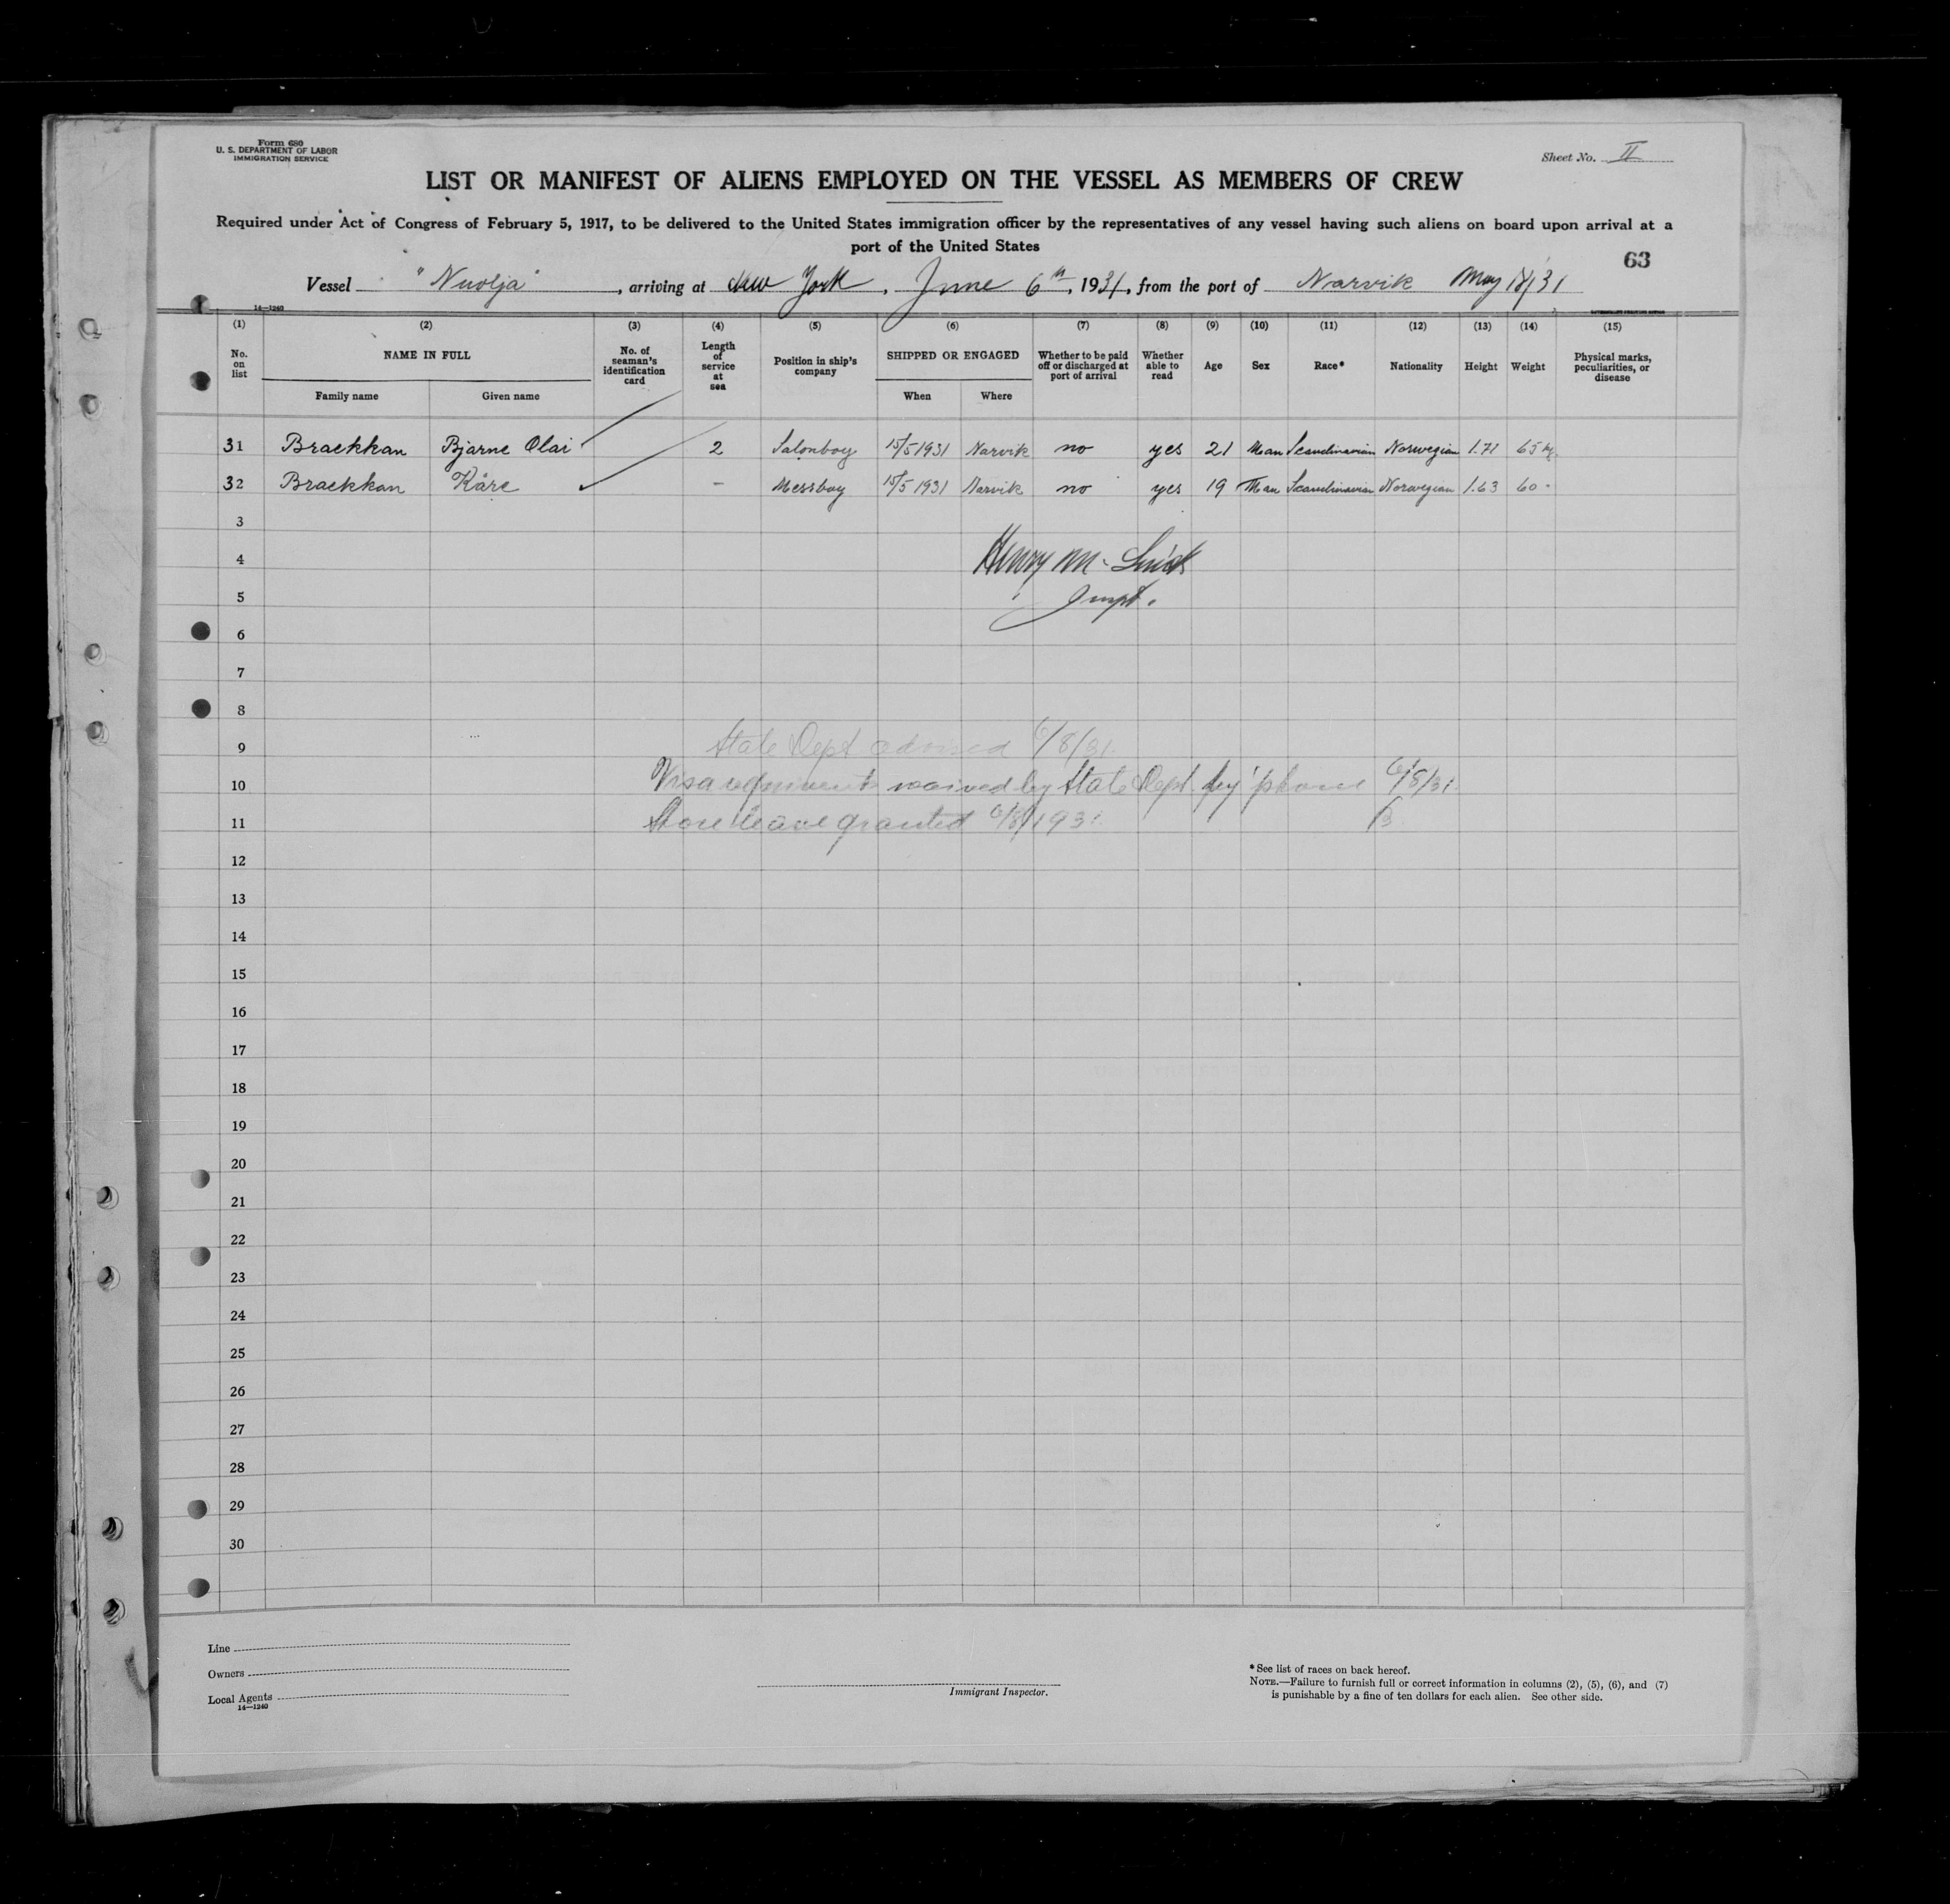 Form 680
U. S. DEPARTMENT OF LABOR
IMMIGRATION SERVICE
Sheet No. II
LIST OR MANIFEST OF ALIENS EMPLOYED ON THE VESSEL AS MEMBERS OF CREW
Required under Act of Congress of February 5, 1917, to be delivered to the United States immigration officer by the representatives of any vessel having such aliens on board upon arrival at a
port of the United States
63
Vessel "Nuolja", arriving at New York, June 6th, 1931, from the port of Narvik May 18/31
14—1240
(1) (2) (3) (4) (5) (6) (7) (8) (9) (10) (11) (12) (13) (14) (15)
No. on list
NAME IN FULL
Family name
Given name
No. of seaman's identification card
Length of service at sea
Position in ship's company
SHIPPED OR ENGAGED
When
Where
Whether to be paid off or discharged at port of arrival
Whether able to read
Age
Sex
Race*
Nationality
Height
Weight
Physical marks, peculiarities, or disease
31 Braekkan Bjarne Olai 2 Salonboy 15/5 1931 Narvik no yes 21 Man Scandinavian Norwegian 1.71 65 kg
32 Braekkan Kåre - Messboy 15/5 1931 Narvik no yes 19 Man Scandinavian Norwegian 1.63 60 "
3
4 Henry M.
5
6
7
8
9 State Dept advised 6/8/31
10 Visa requirements waived by State Dept. by 'phone 6/8/31
11 Shore leave granted 6/8/1931
12
13
14
15
16
17
18
19
20
21
22
23
24
25
26
27
28
29
30
Line
Owners
Local Agents
14—1240
Immigrant Inspector.
*See list of races on back hereof.
NOTE.—Failure to furnish full or correct information in columns (2), (5), (6), and (7)
is punishable by a fine of ten dollars for each alien. See other side.